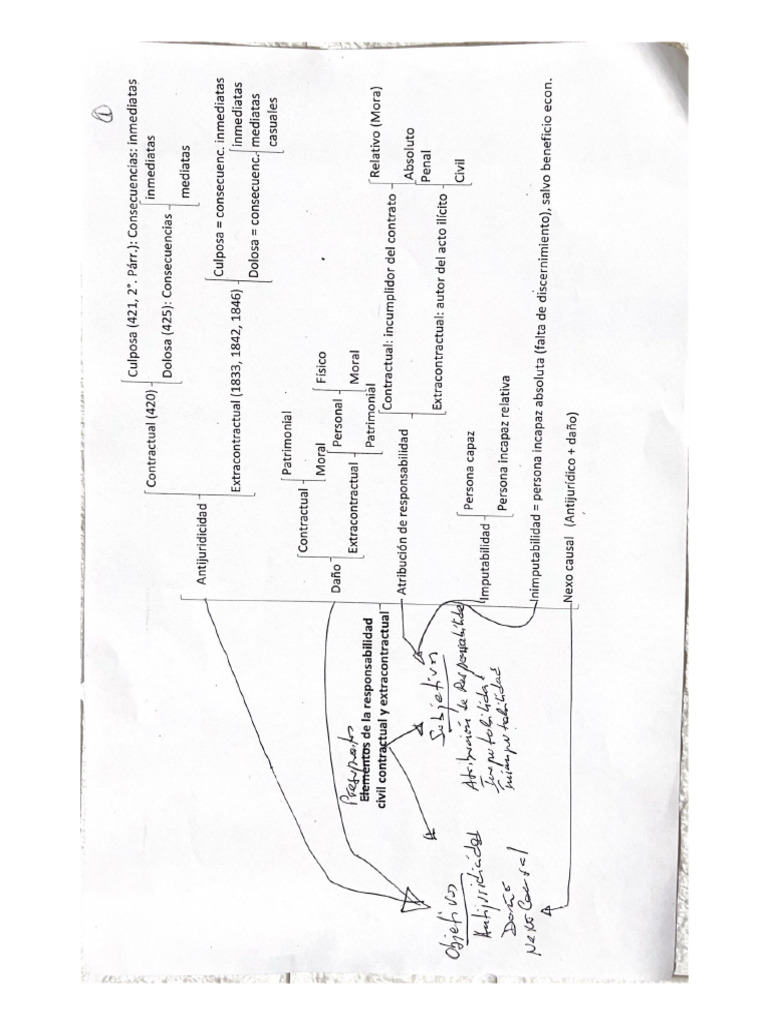 1
Culposa (421, 2°. Párr.): Consecuencias: inmediatas
Contractual (420)
inmediatas
Dolosa (425): Consecuencias
mediatas
Antijuridicidad
Culposa = consecuenc. inmediatas
Extracontractual (1833, 1842, 1846)
inmediatas
Dolosa = consecuenc. mediatas
casuales
Patrimonial
Contractual
Moral
Físico
Daño
Personal
Moral
Extracontractual
Patrimonial
Relativo (Mora)
Contractual: incumplidor del contrato
Absoluto
Atribución de responsabilidad
Penal
Extracontractual: autor del acto ilícito
Civil
Persona capaz
Imputabilidad
Persona incapaz relativa
Inimputabilidad = persona incapaz absoluta (falta de discernimiento), salvo beneficio econ.
Nexo causal (Antijurídico + daño)
Presupuestos
Elementos de la responsabilidad
civil contractual y extracontractual
Subjetivos
Atribución de Responsabilidad
Imputabilidad
Inimputabilidad
Objetivos
Antijuridicidad
Daño
Nexo Causal